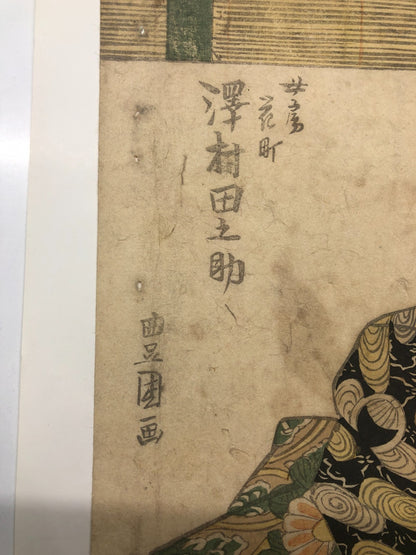 女房
花町
澤村田之助
豊国画